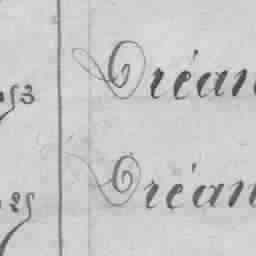 53 Oréan
25 Oréan